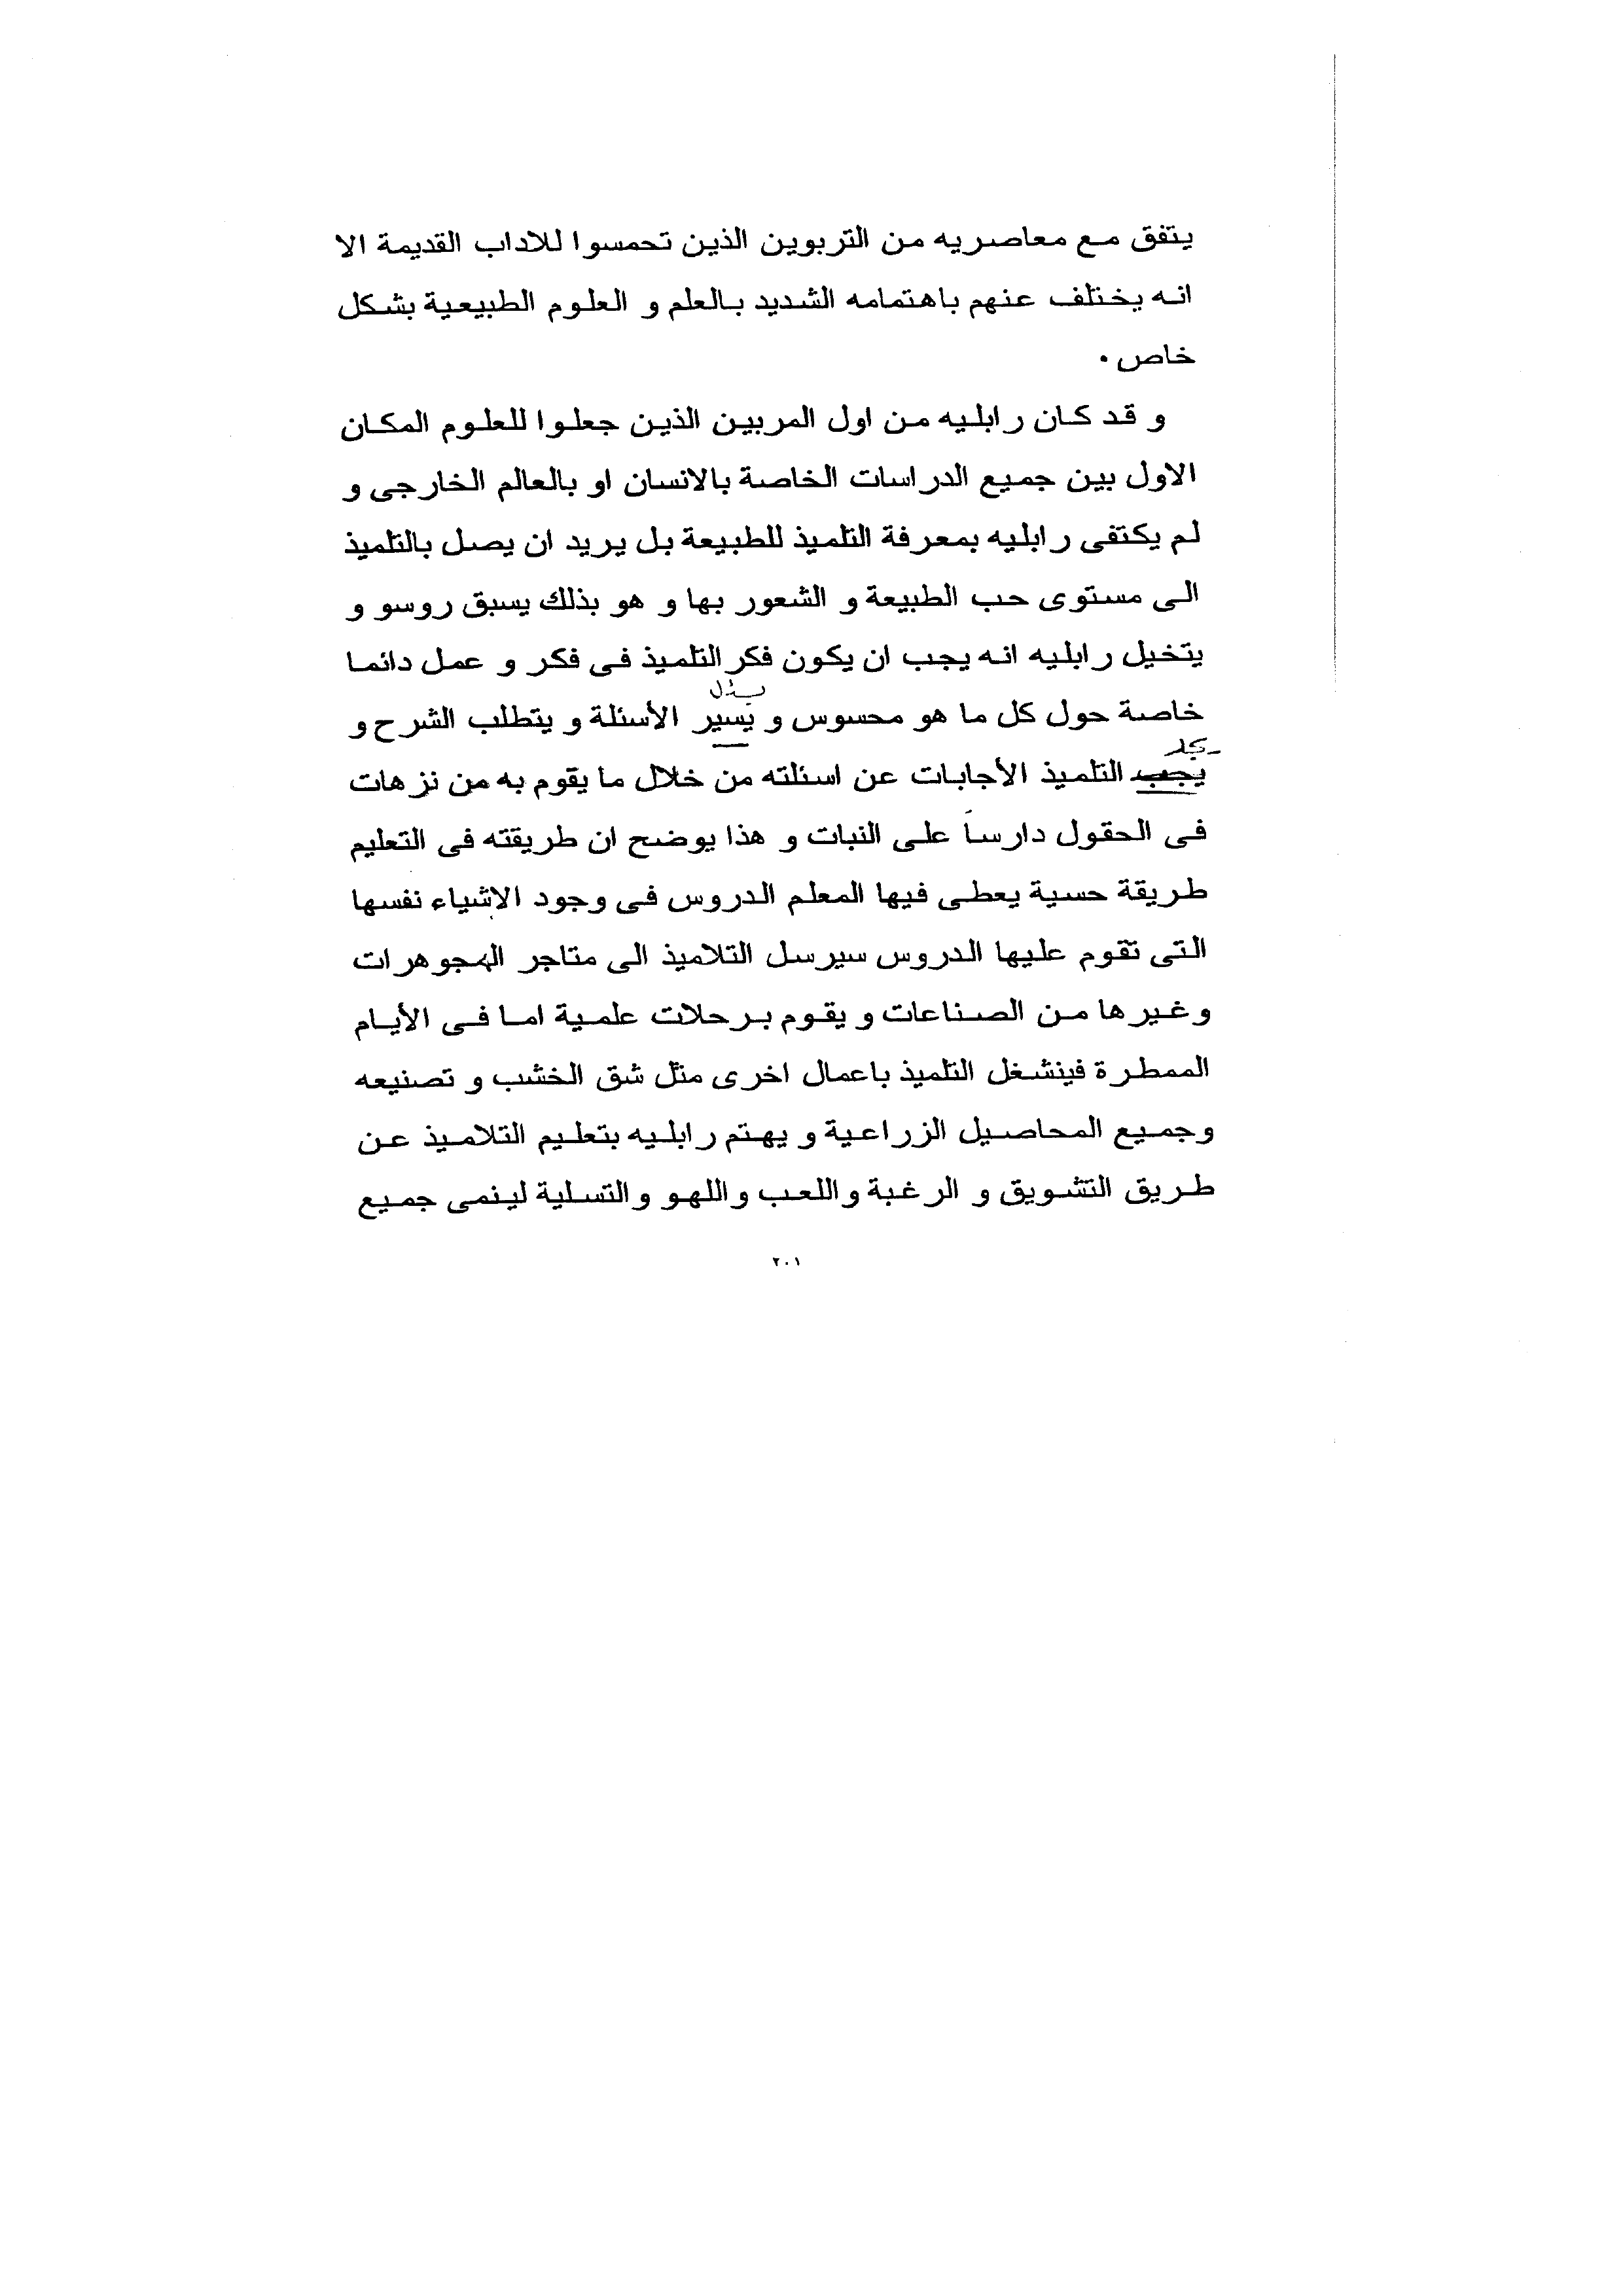 يتفق مع معاصريه من التربوين الذين تحمسوا للاداب القديمة الا
انه يختلف عنهم باهتمامه الشديد بالعلم و العلوم الطبيعية بشكل
خاص .
و قد كان رابليه من اول المربين الذين جعلوا للعلوم المكان
الاول بين جميع الدراسات الخاصة بالانسان او بالعالم الخارجى و
لم يكتفى رابليه بمعرفة التلميذ للطبيعة بل يريد ان يصل بالتلميذ
الى مستوى حب الطبيعة و الشعور بها و هو بذلك يسبق روسو و
يتخيل رابليه انه يجب ان يكون فكر التلميذ فى فكر و عمل دائما
خاصة حول كل ما هو محسوس و يسير الأسئلة و يتطلب الشرح و
يجد
يجب التلميذ الأجابات عن اسئلته من خلال ما يقوم به من نزهات
فى الحقول دارساً على النبات و هذا يوضح ان طريقته فى التعليم
طريقة حسية يعطى فيها المعلم الدروس فى وجود الاشياء نفسها
التى تقوم عليها الدروس سيرسل التلاميذ الى متاجر المجوهرات
وغيرها من الصناعات و يقوم برحلات علمية اما فى الأيام
الممطرة فينشغل التلميذ باعمال اخرى مثل شق الخشب و تصنيعه
وجميع المحاصيل الزراعية و يهتم رابليه بتعليم التلاميذ عن
طريق التشويق و الرغبة واللعب واللهو والتسلية لينمى جميع
٢٠١